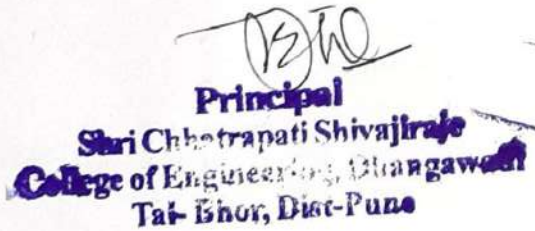 Principal
Shri Chhatrapati Shivajiraje
College of Engineering, Dhangawadi
Tal- Bhor, Dist-Pune